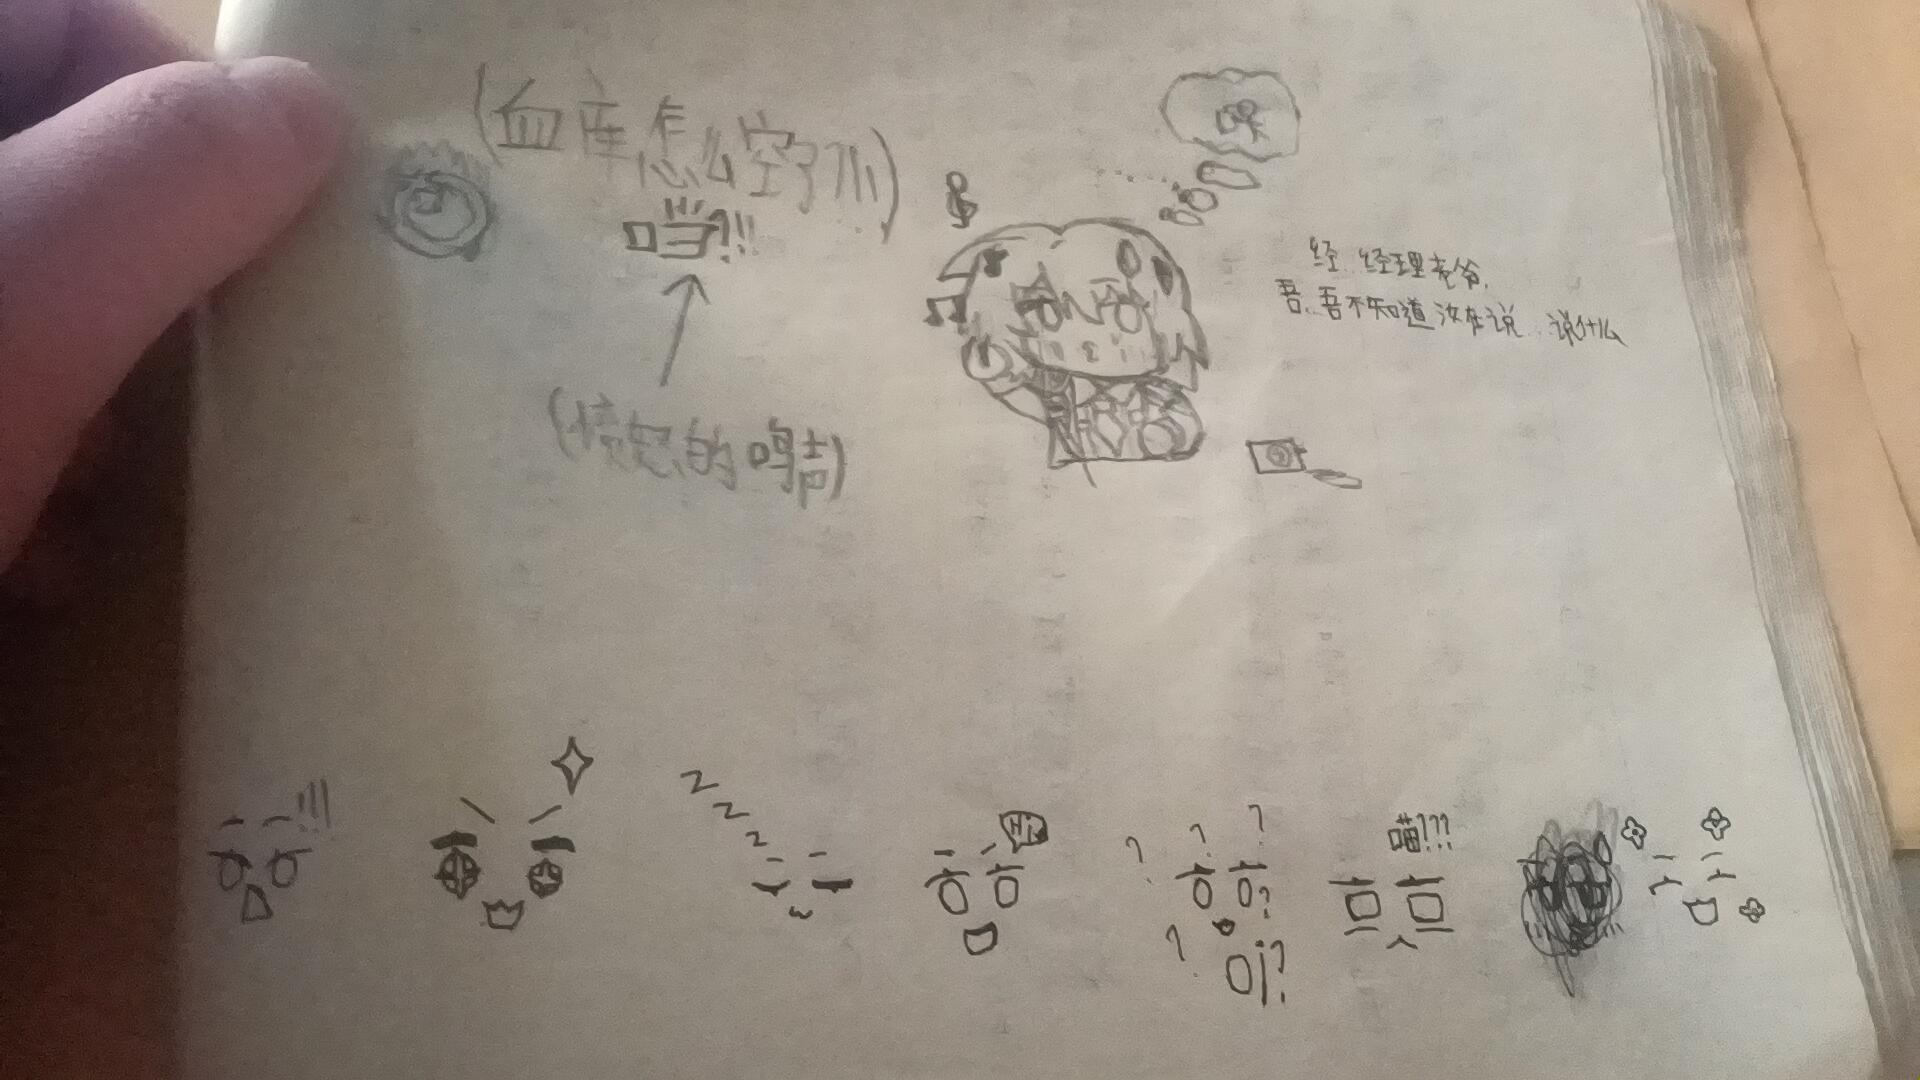 (血库怎么空了!!!)
当?!!
(愤怒的鸣声)
经..经理老爷.
吾..吾不知道汝在说...说什么
!!!
z z z z
Hi
? ? ? ? ?
이?!
喵!???